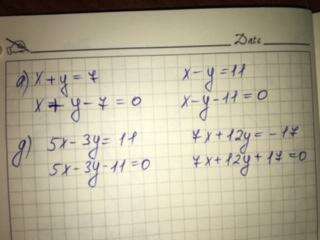 Date
а) x + y = 7 x - y = 11
x + y - 7 = 0 x - y - 11 = 0
д) 5x - 3y = 11 7x + 12y = -17
5x - 3y - 11 = 0 7x + 12y + 17 = 0